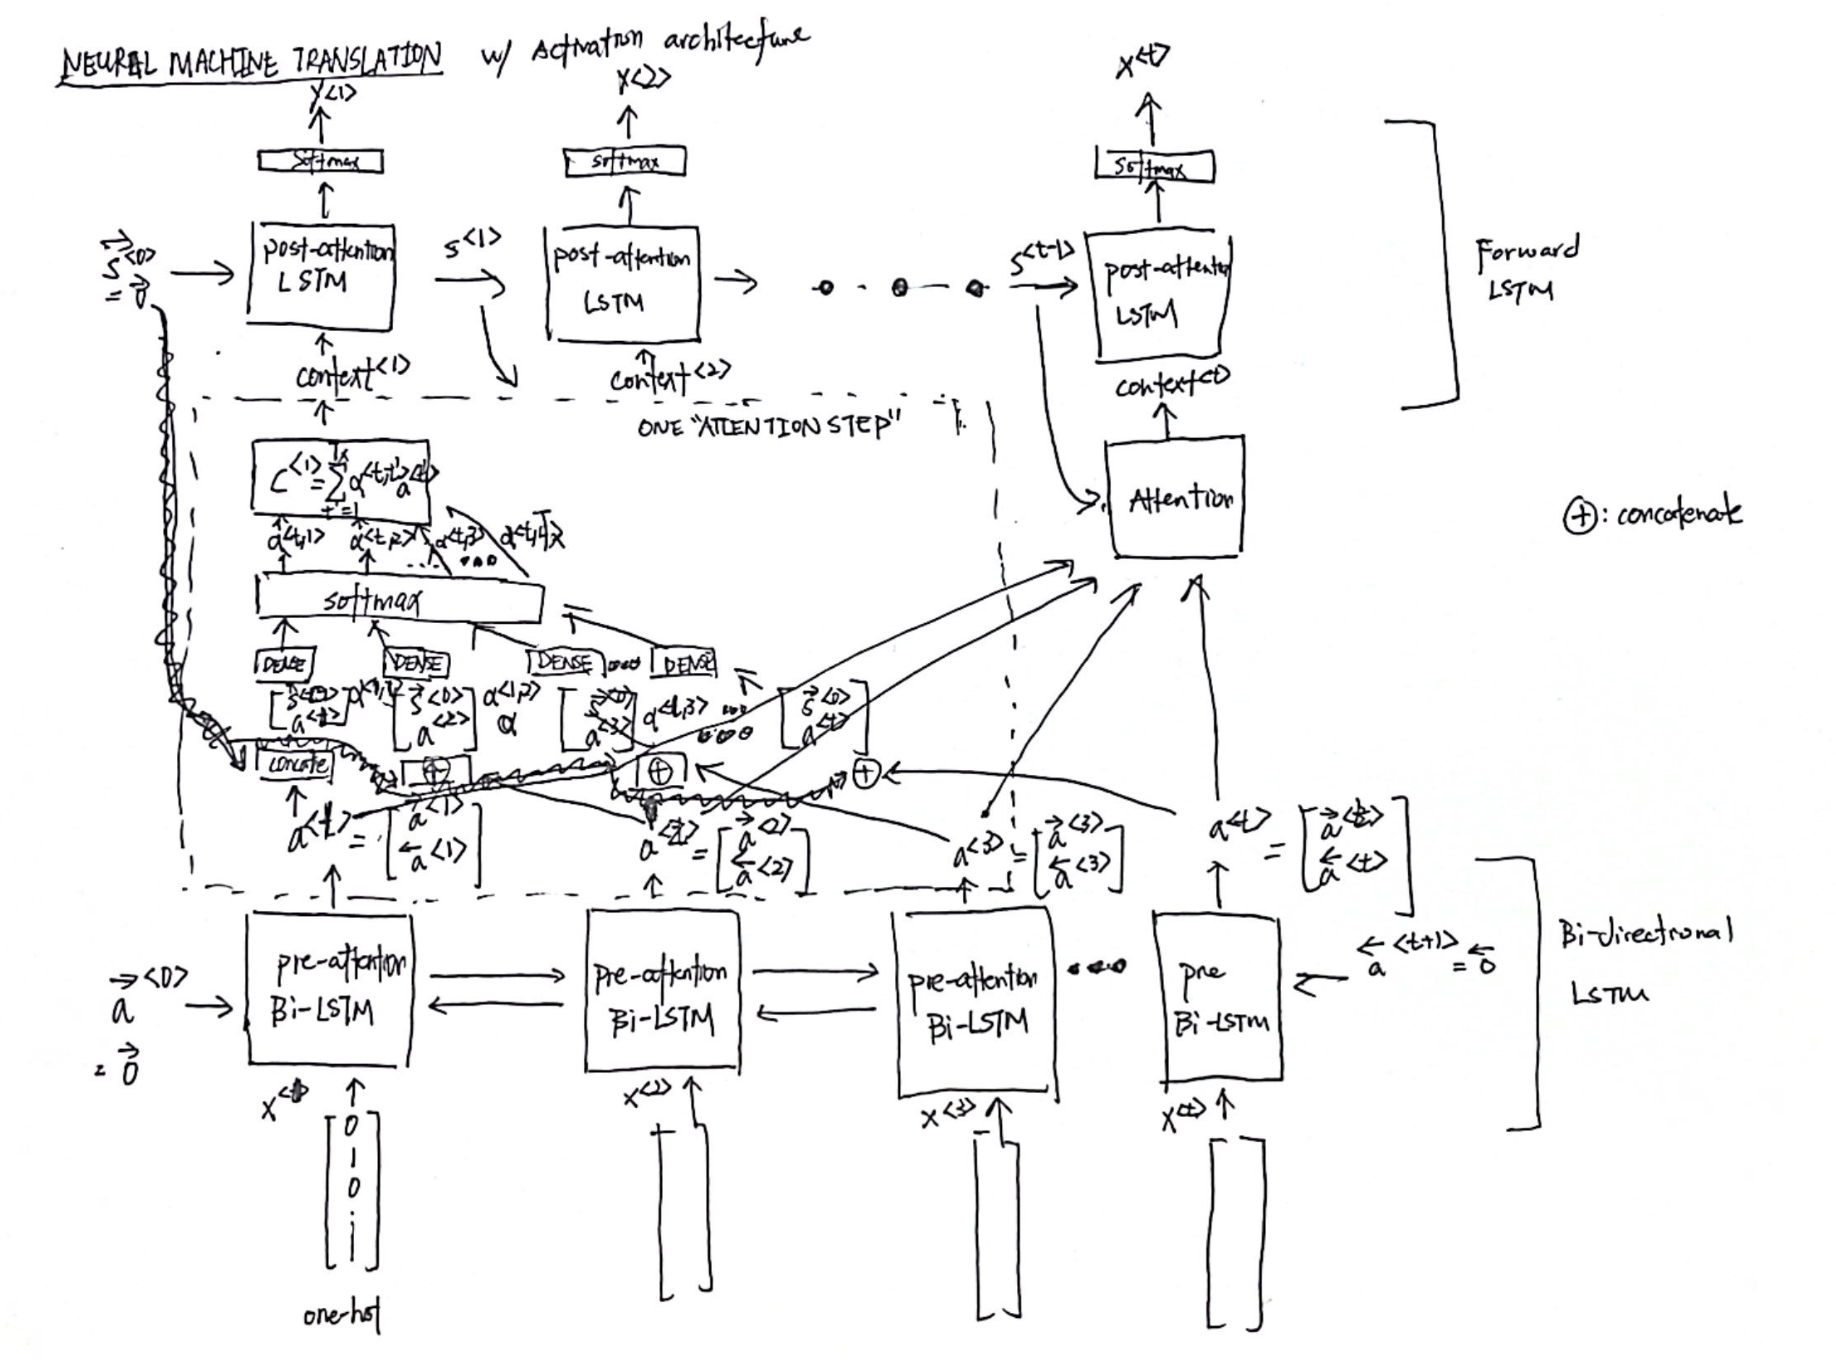 NEURAL MACHINE TRANSLATION w/ Activation architecture
y<1>
x<2>
x<t>
softmax
softmax
softmax
s<0> = 0
post-attention LSTM
s<1>
post-attention LSTM
s<t-1>
post-attention LSTM
Forward LSTM
context<1>
context<2>
context<t>
ONE "ATTENTION STEP"
C<1> = Σ t'=1 Tx α<t,t'> a<t'>
Attention
⊕: concatenate
α<t,1>
α<t,2>
α<t,3>
α<t,Tx>
softmax
DENSE
DENSE
DENSE
DENSE
s<0>
s<0>
a<2>
α<1,2>
α
s<0>
a<3>
α<1,3>
s<0>
a<t>
concate
⊕
⊕
⊕
a<1> = [a<1> a<1>]
a<2> = [a<2> a<2>]
a<3> = [a<3> a<3>]
a<t> = [a<t> a<t>]
a<t+1> = 0
a<0> = 0
pre-attention Bi-LSTM
pre-attention Bi-LSTM
pre-attention Bi-LSTM
pre Bi-LSTM
Bi-directional LSTM
x<1>
x<2>
x<3>
x<t>
0
1
0
one-hot